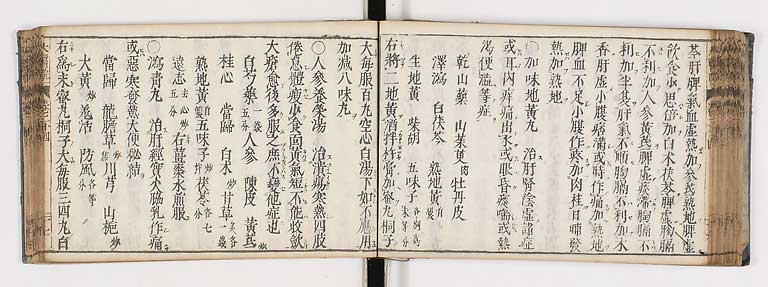 苓肝脾氣血虛熱加參芪熱地脾虛
飲食少思倍加白朮茯苓脾虛胸膈
不利加人參黃芪脾虛痰滯胸膈不
利加半夏肝氣不順胸膈不利加木
香肝虛小腹痞滿或時作痛加熟地
脾血不足小腹作疼加肉桂日晡發
熱加熟地
〇加味地黃丸 治肝腎陰虛諸症
或耳內痒痛出水或眼昏痰喘或熱
渴便澁等症
乾山藥 山茱萸肉 牡丹皮
澤瀉 白茯苓 熟地黃
生地黃 柴胡 五味子
右將二地黃 加蜜丸桐子
大每服百丸空心白湯下如不應用
加減八味丸
〇人參養榮湯 治潰瘍寒熱四肢
倦怠體瘦少食面黃氣短不能收斂
大瘡愈後多服之庶不變他症也
白芍藥 人參 陳皮 黃芪
桂心 當歸 白朮 甘草
熟地黃 五味子 茯苓
遠志 右薑棗水煎服
〇瀉青丸 治肝經實火脇乳作痛
或惡寒發熱大便秘結
當歸 龍膽草 川芎 山梔
大黃 羌活 防風
右爲末蜜丸桐子大每服三四丸白